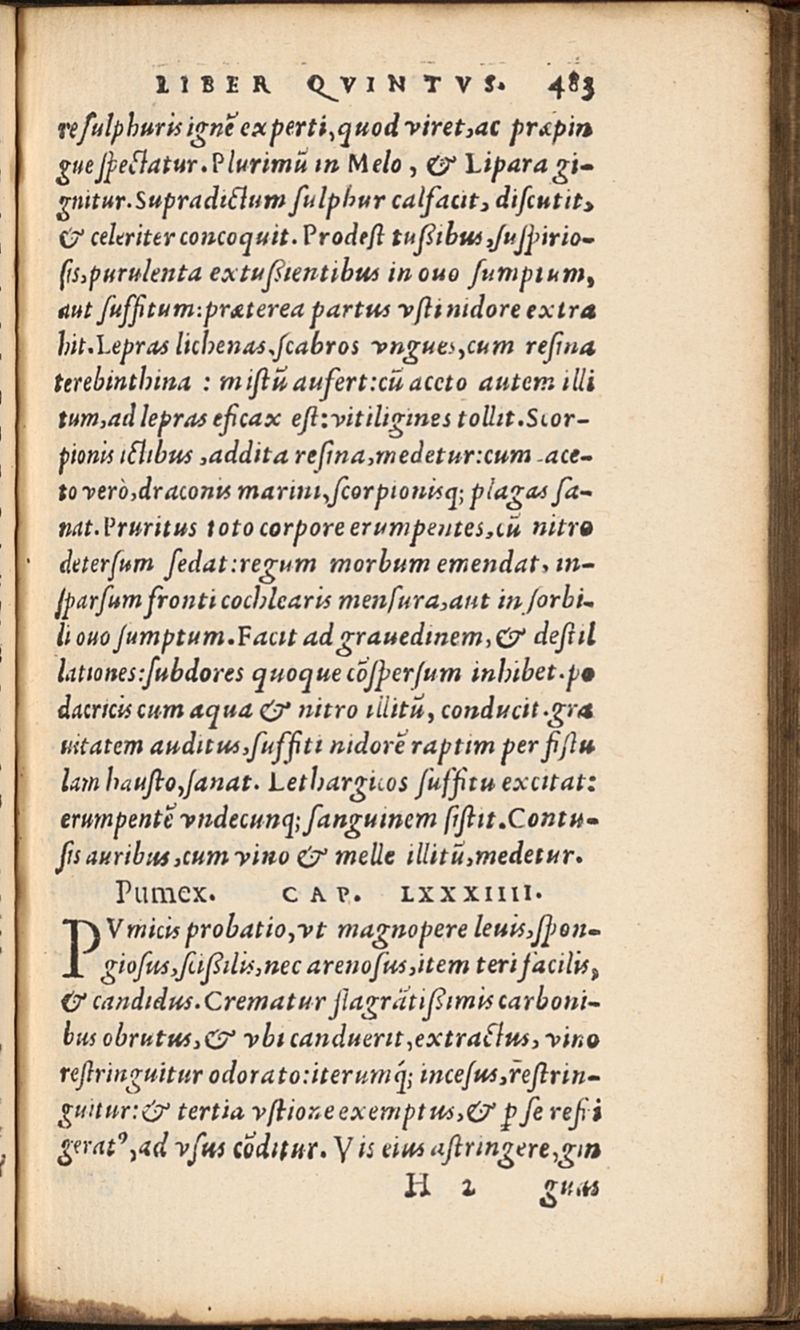 LIBER QVINTVS. 483
re sulphuris ignē experti, quod viret, ac præpin
gue spectatur. Plurimū in Melo, & Lipara gi-
gnitur. Supradictum sulphur calfacit, discutit,
& celeriter concoquit. Prodest tußibus, suspirio-
sis, purulenta extußientibus in ouo sumptum,
aut suffitum: præterea partus vsti nidore extra
hit. Lepras lichenas, scabros vngues, cum resina
terebinthina : mistū aufert: cū aceto autem illi
tum, ad lepras eficax est: vitiligines tollit. Scor-
pionis ictibus , addita resina, medetur: cum ace-
to verò, draconis marini, scorpionisq; plagas sa-
nat. Pruritus toto corpore erumpentes, cū nitro
detersum sedat: regum morbum emendat, in-
sparsum fronti cochlearis mensura, aut in sorbi-
li ouo sumptum. Facit ad grauedinem, & destil
lationes: subdores quoque cōspersum inhibet. po
dacricis cum aqua & nitro illitū, conducit. gra
uitatem auditus, suffiti nidorē raptim per fistu
lam hausto, sanat. Lethargicos suffitu excitat:
erumpentē vndecunq; sanguinem sistit. Contu-
sis auribus, cum vino & melle illitū, medetur.
Pumex. CAP. LXXXIIII.
PVmicis probatio, vt magnopere leuis, spon-
giosus, scißilis, nec arenosus, item teri facilis,
& candidus. Crematur flagrātißimis carboni-
bus obrutus, & vbi canduerit, extractus, vino
restringuitur odorato: iterumq́; incesus, restrin-
guitur: & tertia vstione exemptus, & ꝑ se refri
geratꝰ, ad vsus cōditur. Vis eius astringere, gin
H 2 guas